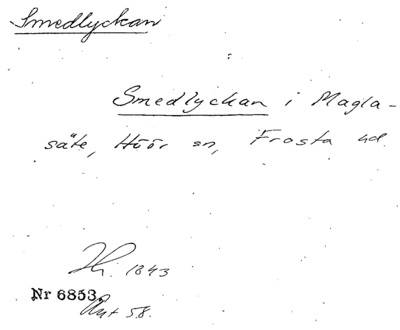 Smedlyckan
Smedlyckan i Magla-
säte, Höör sn, Frosta hd.
1843
Nr 6853.
58.